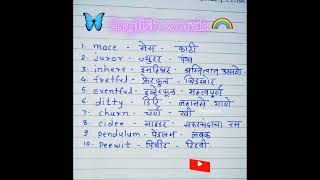 🦋 English words 🌈
1. mace - मेस - काठी
2. juror - ज्युरर - पंच
3. inhere - इनहिअर - अस्तित्वात असणे
4. fretful - फ्रेटफुल - चिडखोर
5. eventful - इव्हेंटफुल - महत्वपूर्ण
6. ditty - डिटि - लहानसे गाणे
7. churn - चर्न - रवी
8. cider - साइडर - सफरचंदाचा रस
9 pendulum - पेंडुलम - लंबक
10. peewit - पिविट - टिटवी